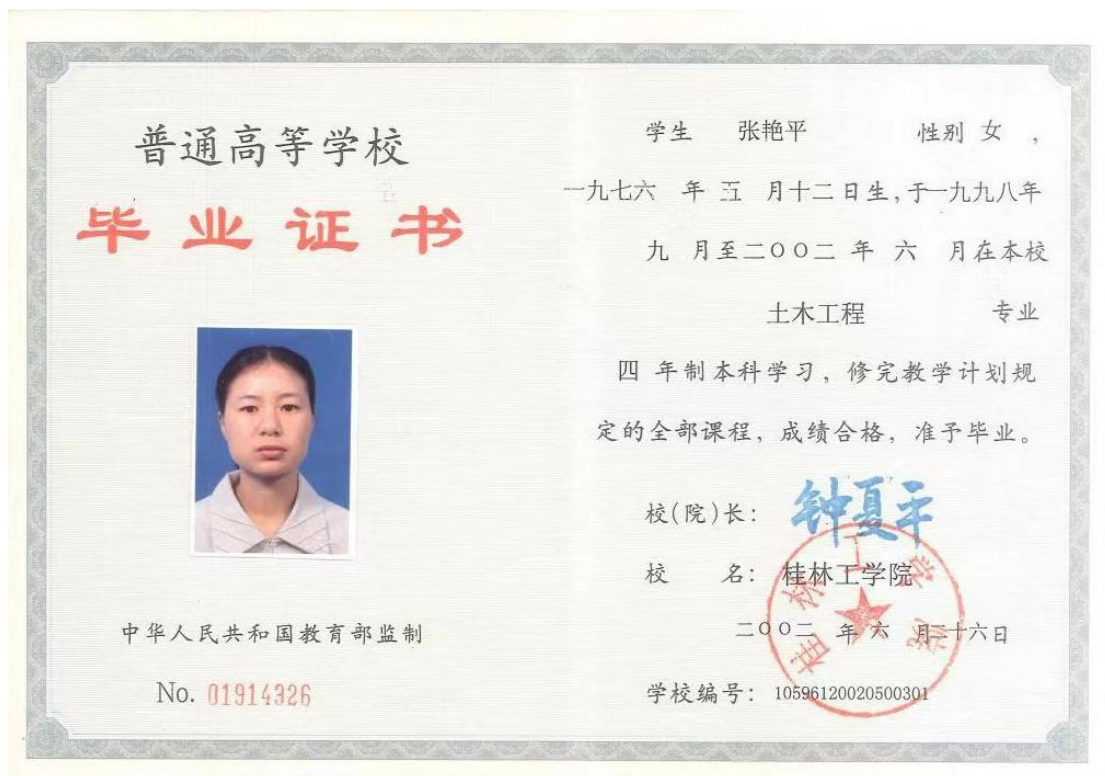 普通高等学校
毕业证书
中华人民共和国教育部监制
No. 01914326
学生 张艳平 性别 女 ，
一九七六 年 五 月十二日生，于一九九八年
九 月至二〇〇二 年 六 月在本校
土木工程 专业
四 年制本科学习，修完教学计划规
定的全部课程，成绩合格，准予毕业。
校(院)长： 钟夏平
校 名： 桂林工学院
二〇〇二 年 六 月二十六日
学校编号： 10596120020500301
桂林工学院